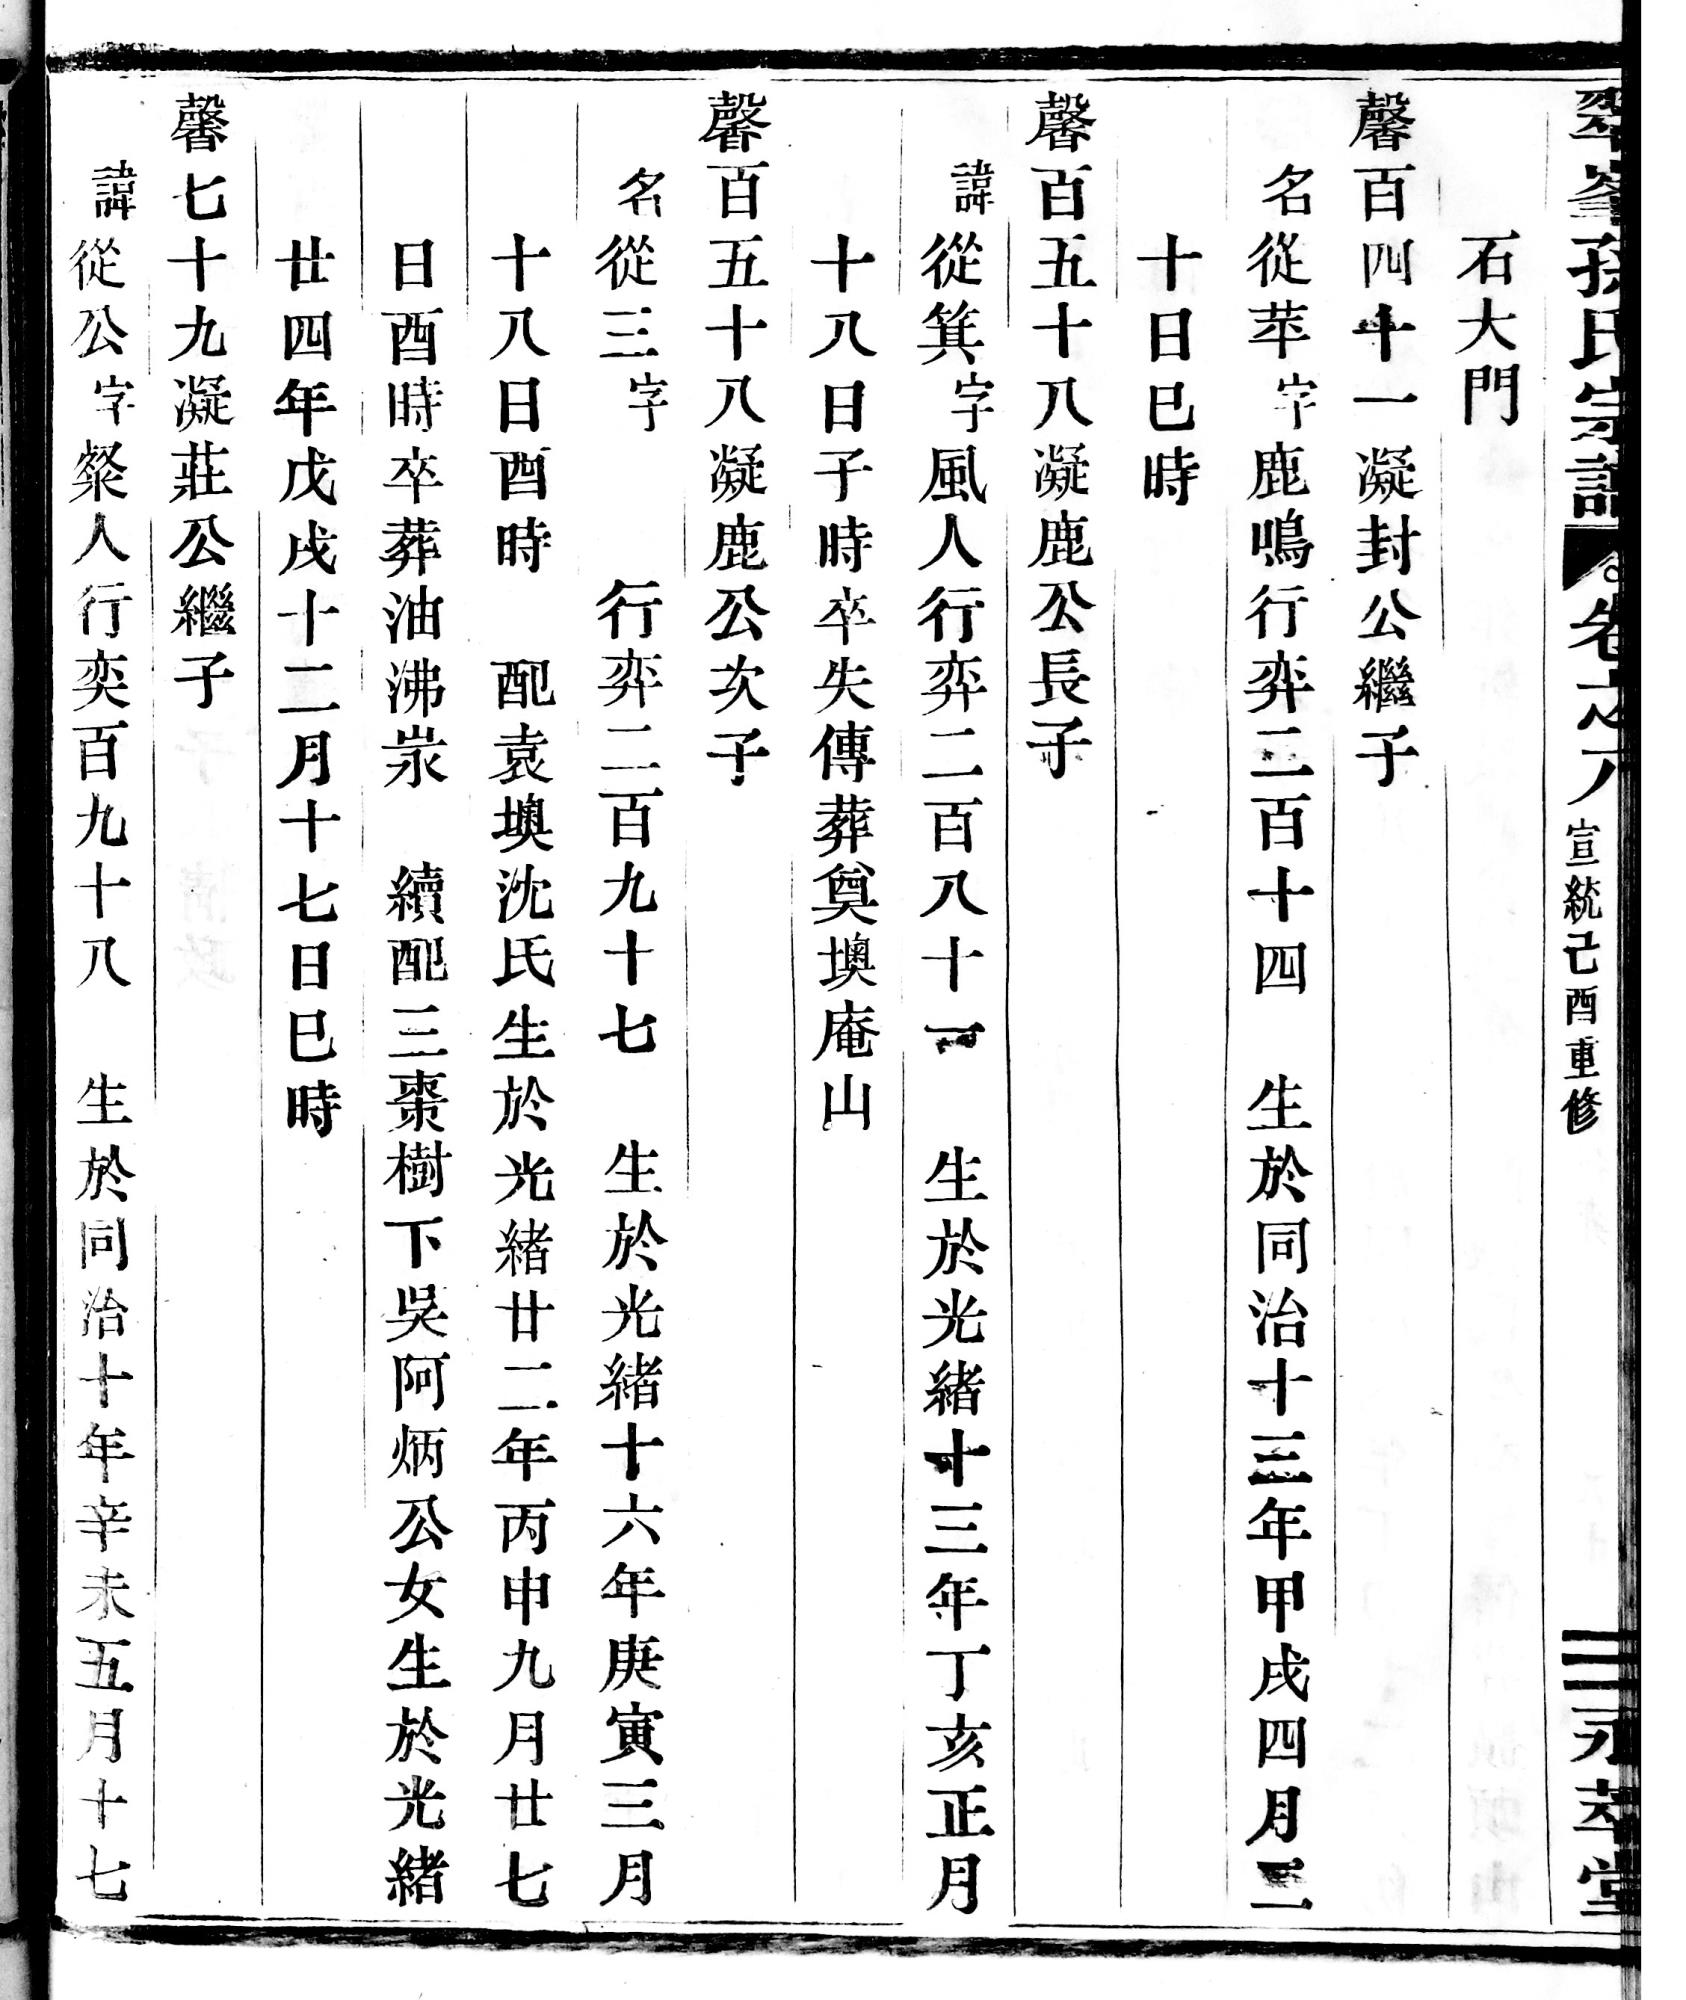 翠峯孫氏宗譜 卷之八 宣統己酉重修 二 永萃堂
石大門
馨百四十一凝封公繼子
名從苹字鹿鳴行弈二百十四 生於同治十三年甲戌四月二
十日巳時
馨百五十八凝鹿公長子
諱從箕字風人行弈二百八十一 生於光緒十三年丁亥正月
十八日子時卒失傳葬奠墺庵山
馨百五十八凝鹿公次子
名從三字 行弈二百九十七 生於光緒十六年庚寅三月
十八日酉時 配袁墺沈氏生於光緒廿二年丙申九月廿七
日酉時卒葬油沸岽 續配三棗樹下吳阿炳公女生於光緒
廿四年戊戌十二月十七日巳時
馨七十九凝莊公繼子
諱從公字粲人行奕百九十八 生於同治十年辛未五月十七